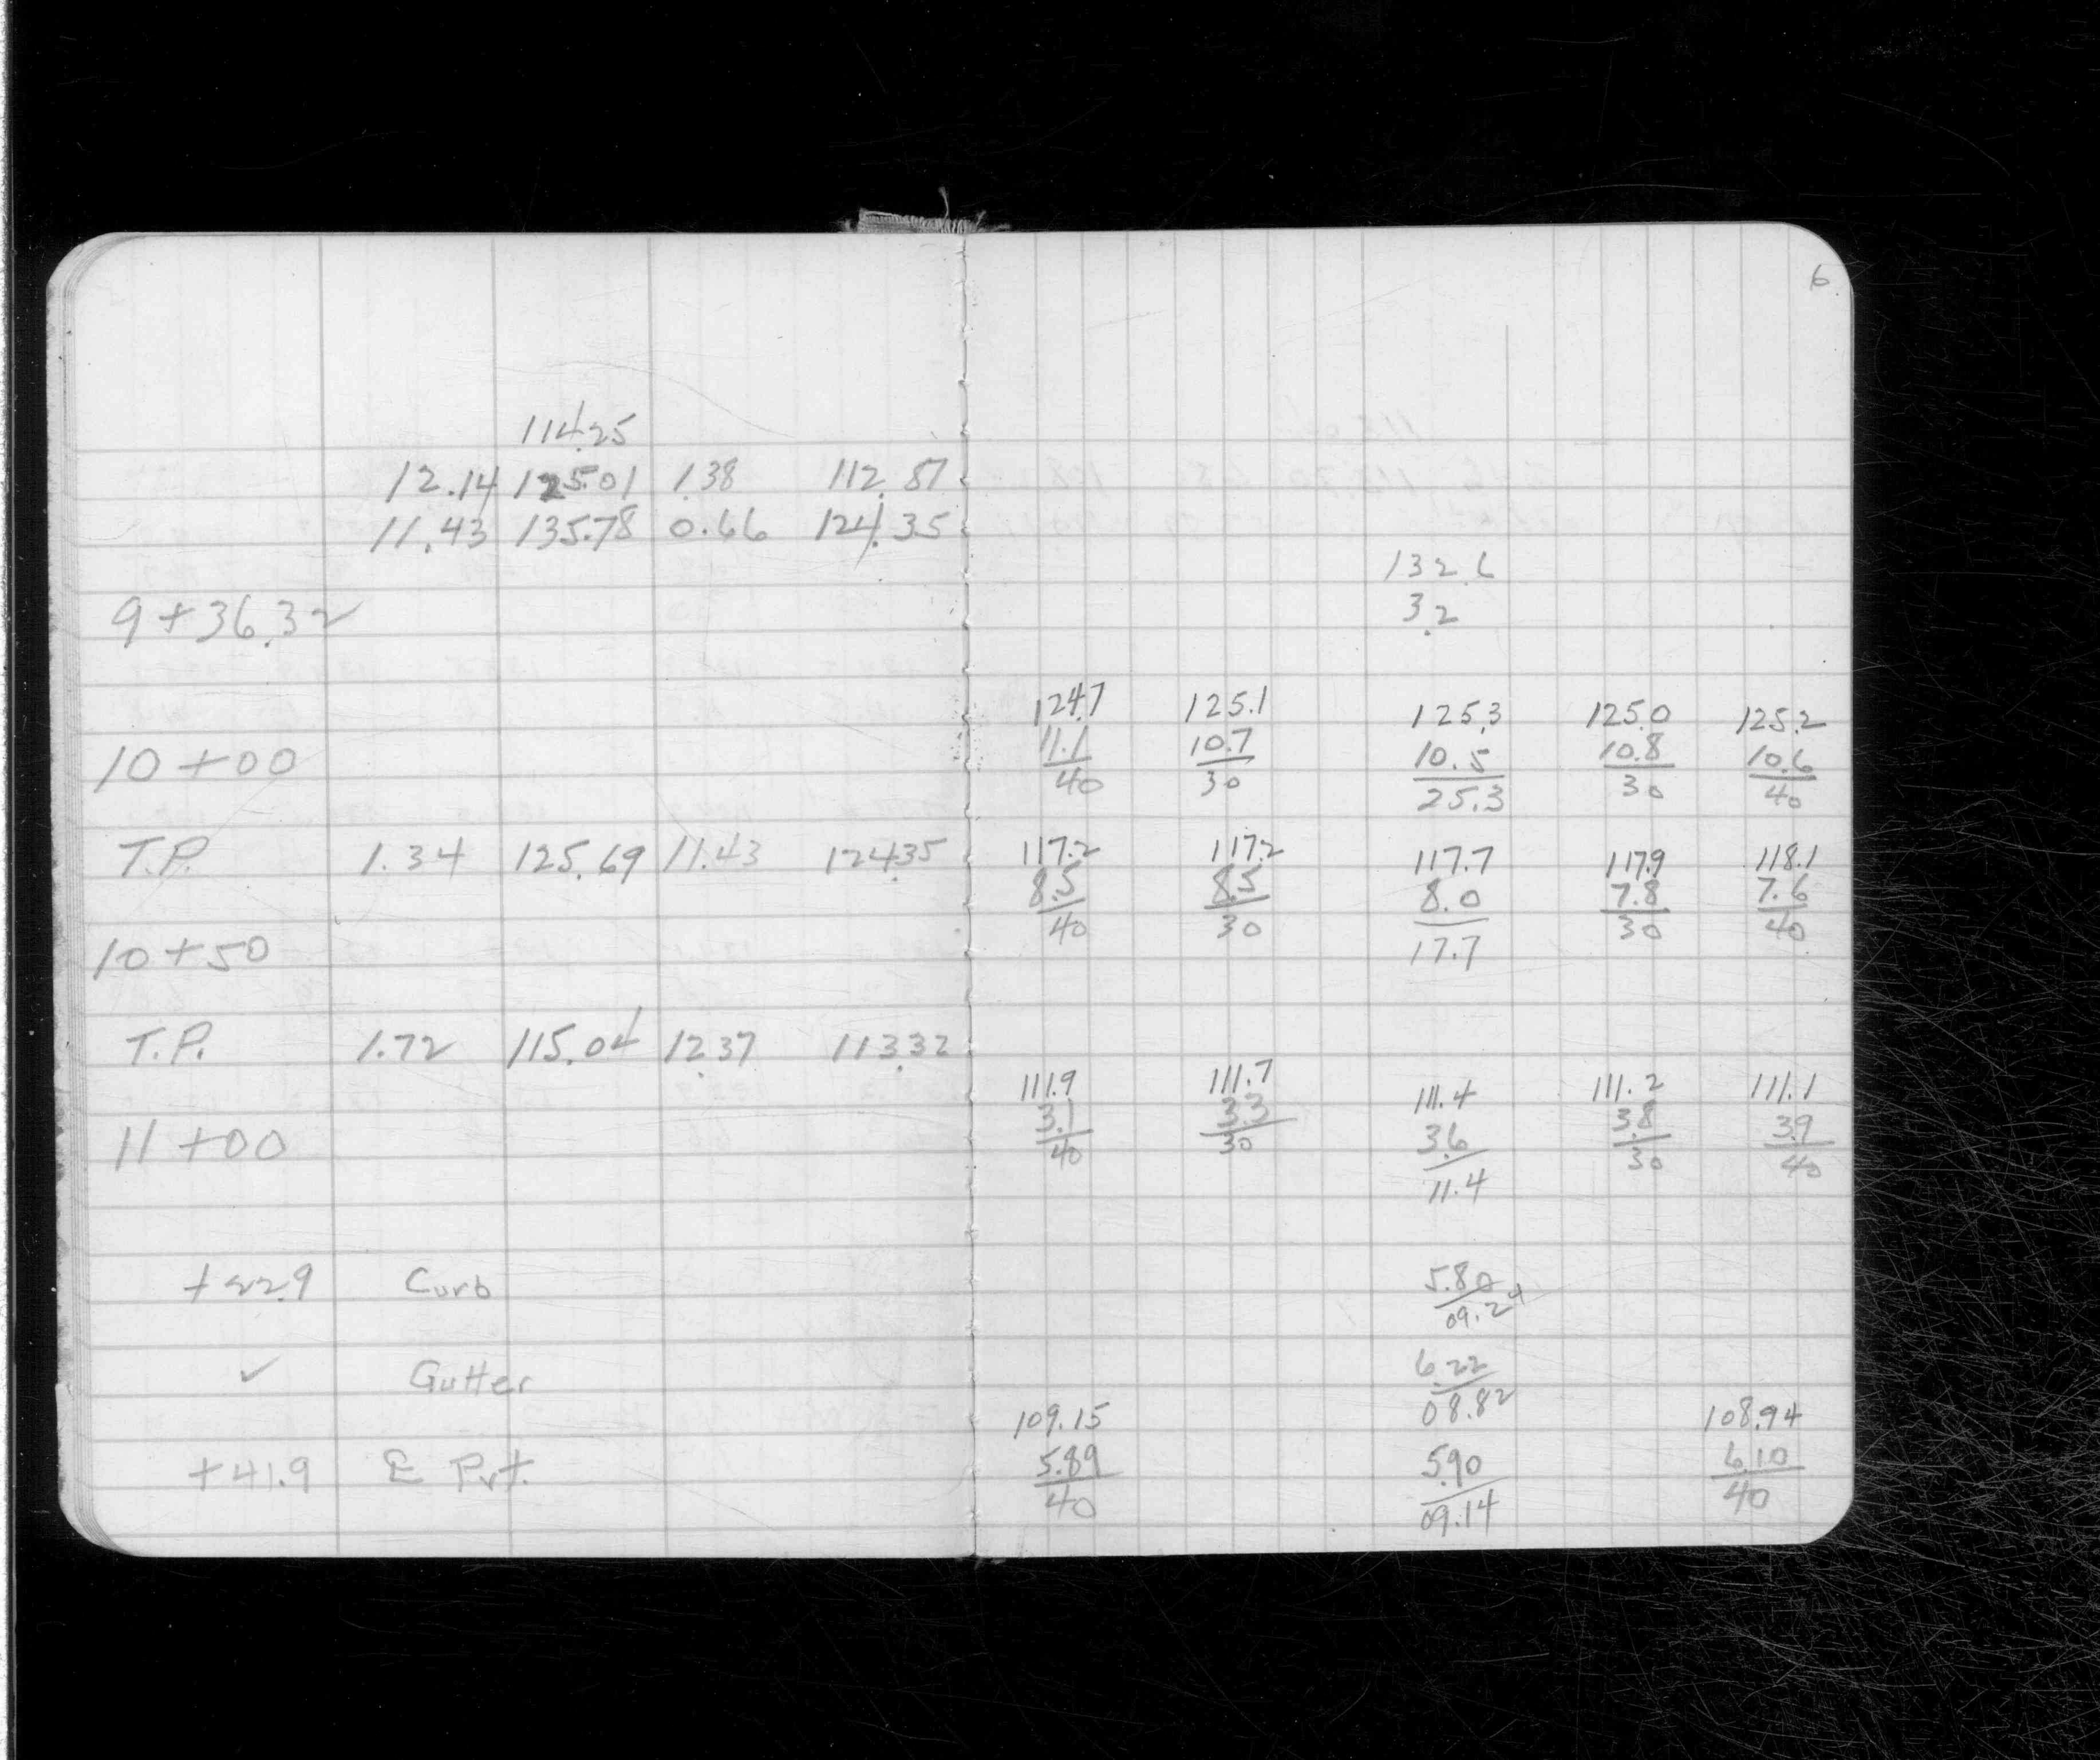 6
114.25
12.14 125.01 1.38 112.87
11.43 135.78 0.66 124.35
132.6
9+36.32 3.2
124.7 125.1 125.3 125.0 125.2
10+00 11.1 10.7 10.5 10.8 10.6
40 30 25.3 30 40
T.P. 1.34 125.69 11.43 124.35 117.2 117.2 117.7 117.9 118.1
8.5 8.5 8.0 7.8 7.6
10+50 40 30 17.7 30 40
T.P. 1.72 115.04 12.37 113.32
111.9 111.7 111.4 111.2 111.1
11+00 3.1 3.3 3.6 3.8 3.9
40 30 11.4 30 40
+22.9 Curb 5.80
09.24
✓ Gutter 6.22
08.82
109.15 108.94
+41.9 Pvt. 5.89 5.90 6.10
40 09.14 40